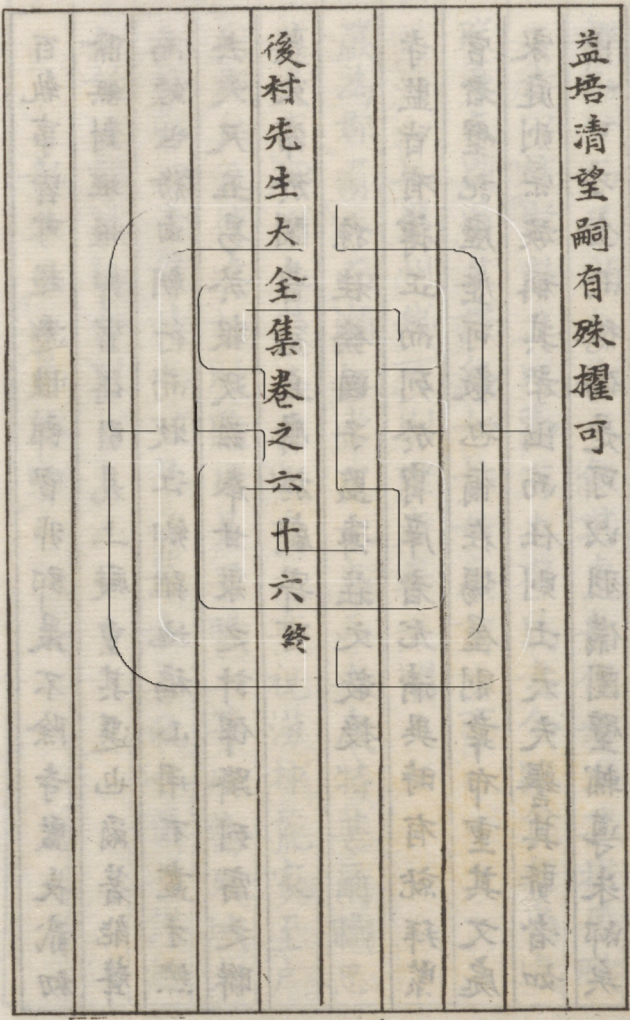 益培清望嗣有殊擢可
後村先生大全集卷之六十六終